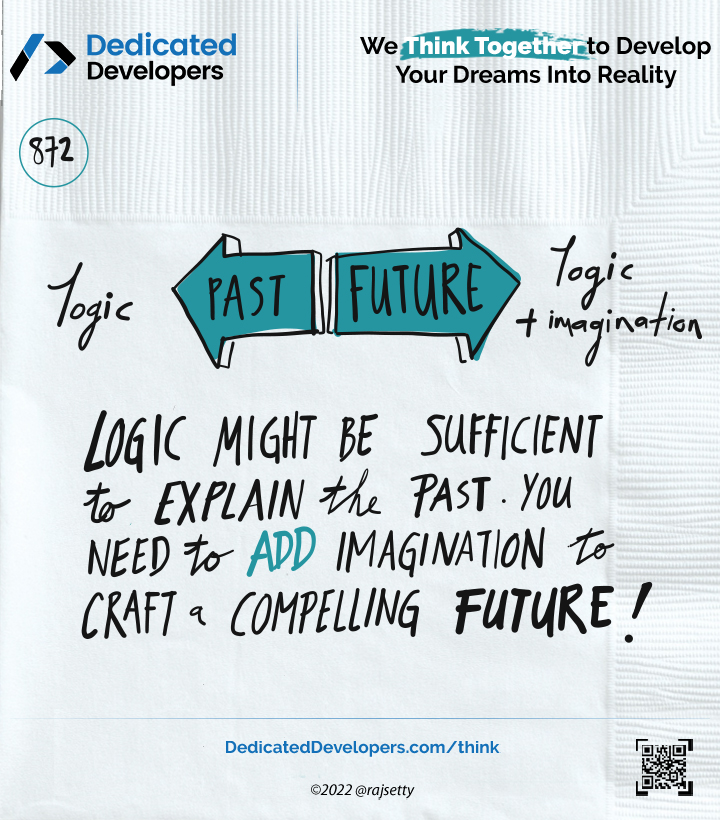 Dedicated
Developers
We Think Together to Develop
Your Dreams Into Reality
872
logic
PAST
FUTURE
logic
+ imagination
LOGIC MIGHT BE SUFFICIENT
to EXPLAIN the PAST. YOU
NEED to ADD IMAGINATION to
CRAFT a COMPELLING FUTURE!
DedicatedDevelopers.com/think
©2022 @rajsetty